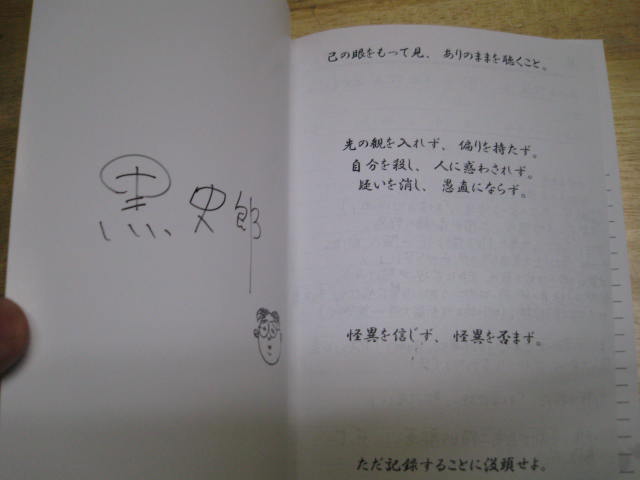 黒史郎
己の眼をもって見、ありのままを聴くこと。
先の観を入れず、偏りを持たず。
自分を殺し、人に惑わされず。
疑いを消し、愚直にならず。
怪異を信じず、怪異を否まず。
ただ記録することに没頭せよ。